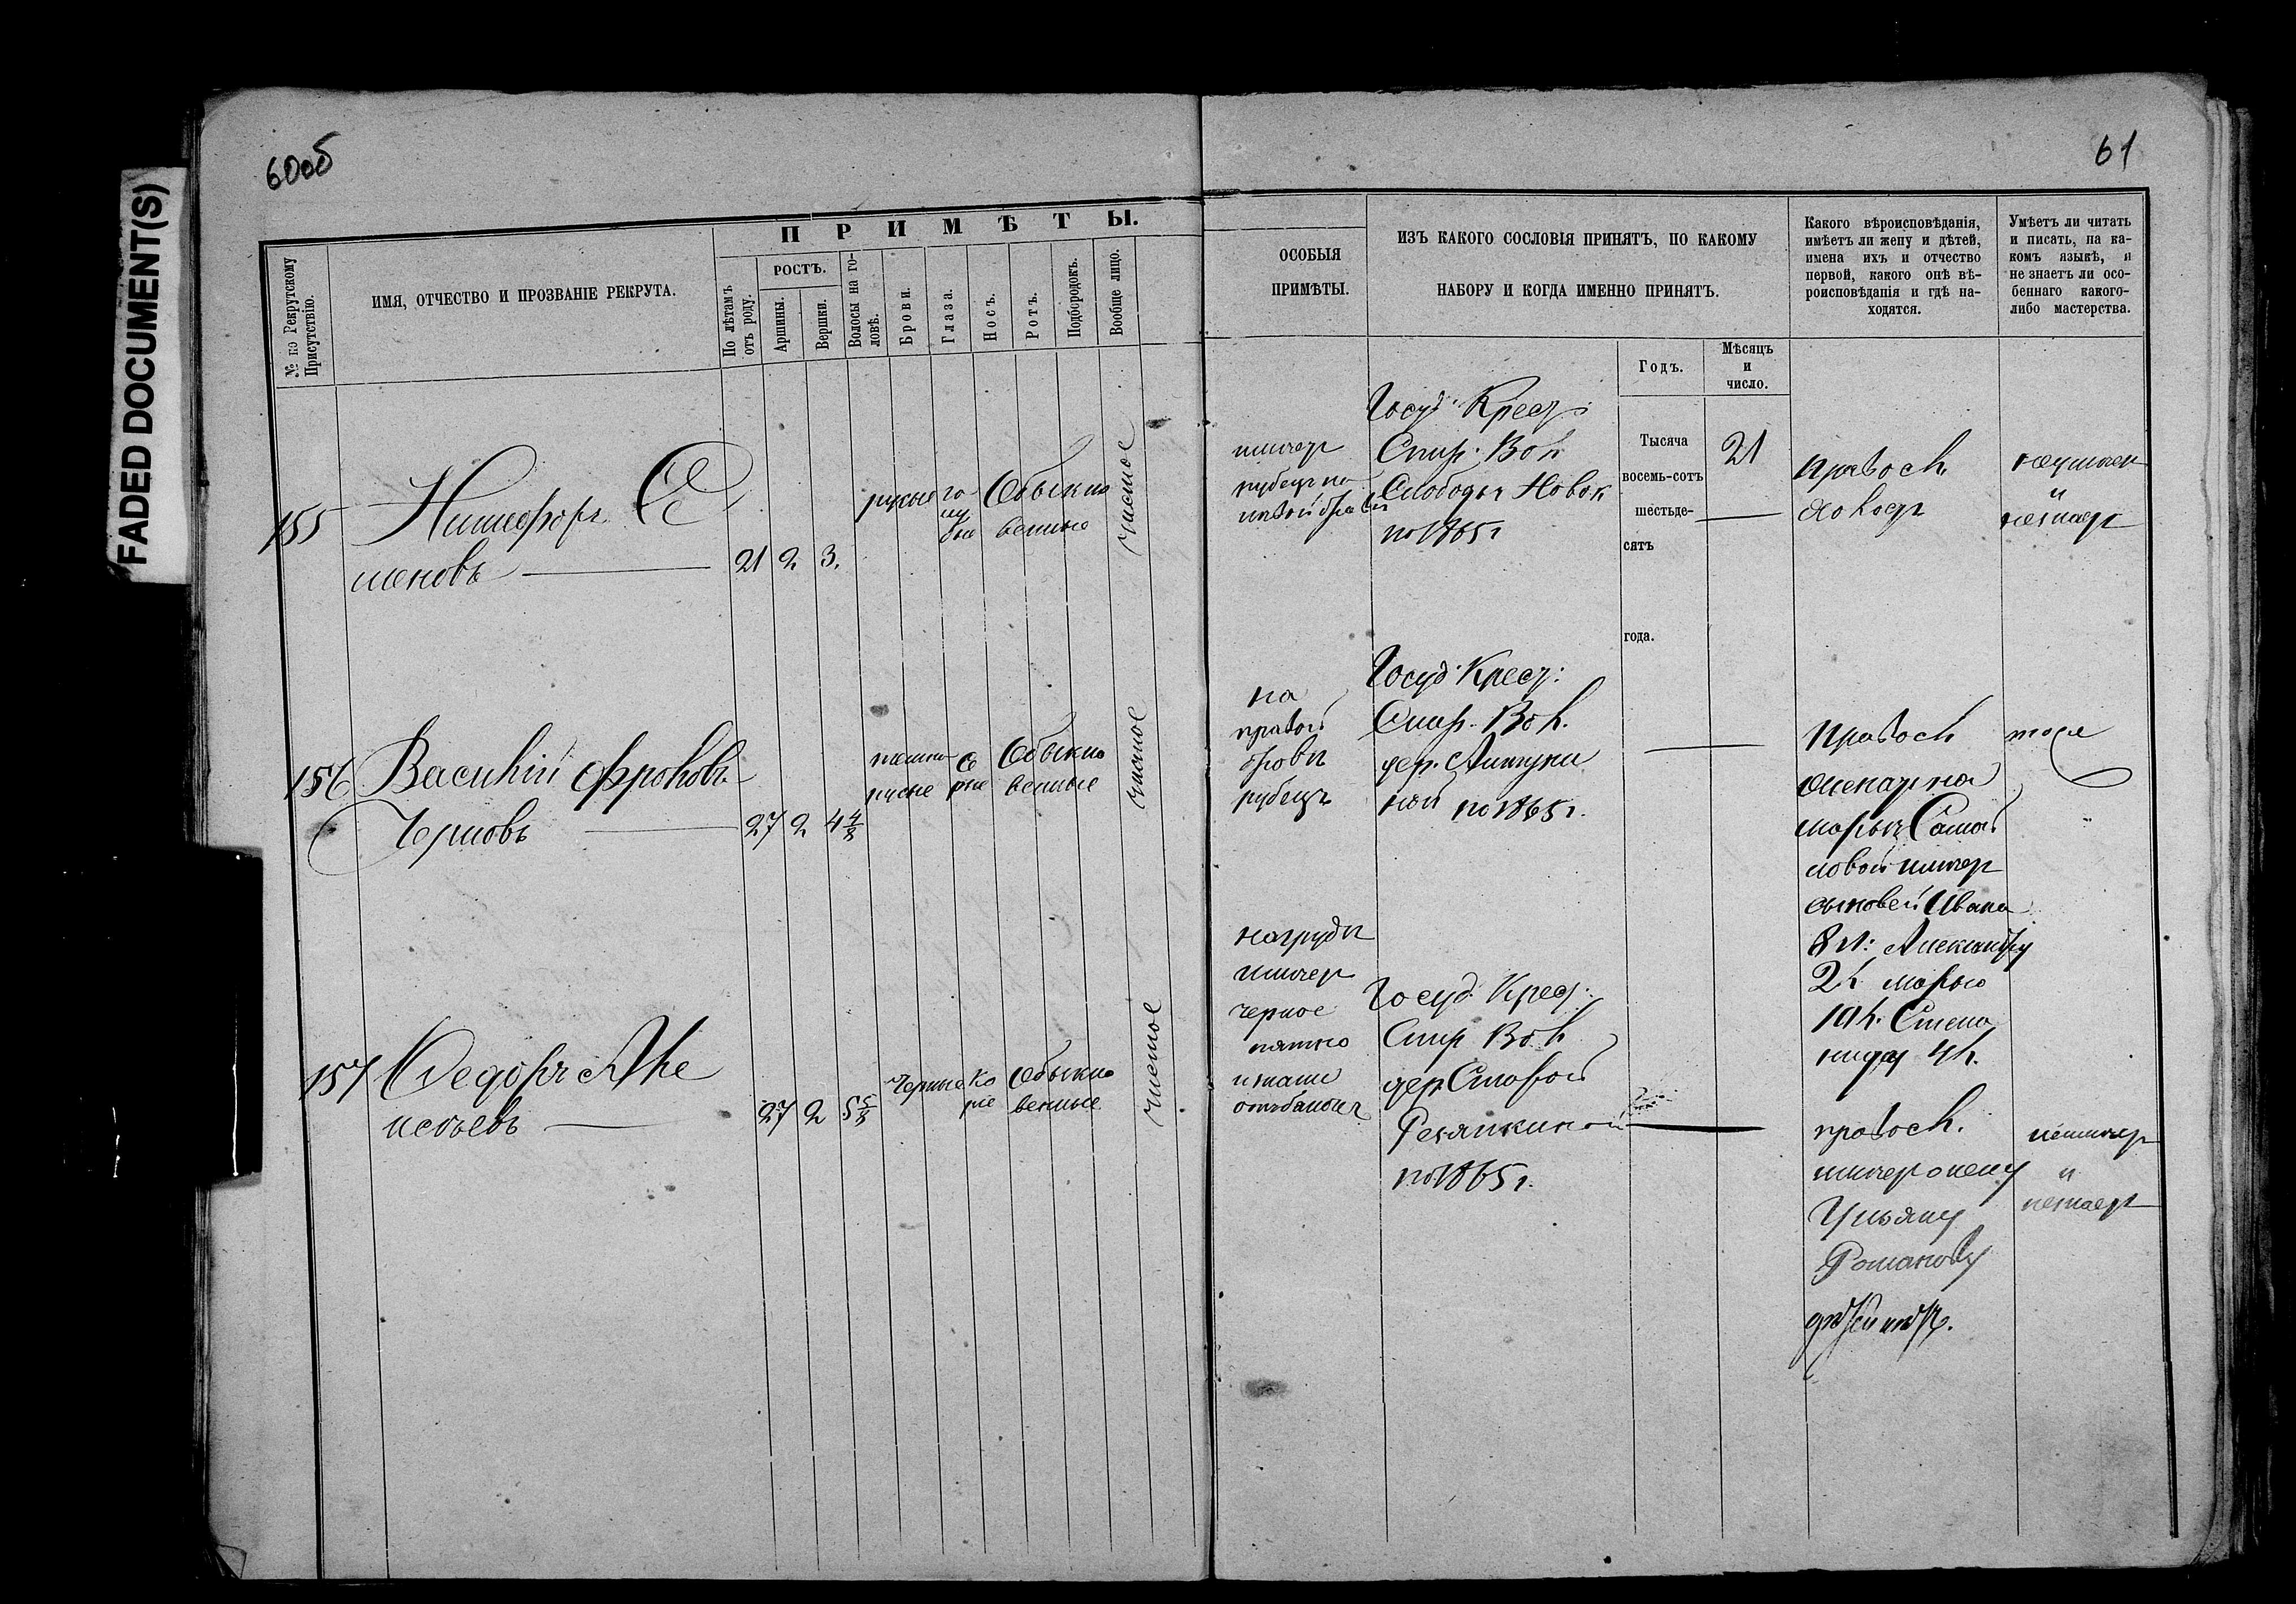 FADED DOCUMENT(S)
60об
61
П Р И М Ѣ Т Ы.
№ по Рекрутскому Присутствію.
ИМЯ, ОТЧЕСТВО И ПРОЗВАНІЕ РЕКРУТА.
По лѣтамъ отъ роду.
РОСТЪ.
Аршины.
Вершки.
Волосы на го-
ловѣ.
Брови.
Глаза.
Носъ.
Ротъ.
Подбородокъ.
Вообще лицо.
ОСОБЫЯ
ПРИМѢТЫ.
ИЗЪ КАКОГО СОСЛОВІЯ ПРИНЯТЪ, ПО КАКОМУ
НАБОРУ И КОГДА ИМЕННО ПРИНЯТЪ.
Годъ.
Мѣсяцъ
и
число.
Какого вѣроисповѣданія,
имѣетъ ли жену и дѣтей,
имена ихъ и отчество
первой, какого онѣ вѣ-
роисповѣданія и гдѣ на-
ходятся.
Умѣетъ ли читать
и писать, на ка-
комъ языкѣ, и
не знаетъ ли осо-
беннаго какого-
либо мастерства.
155
Никифоръ Се
меновъ
21 2 3.
русые
го
лу
бые
Обыкно
венные
чистое
имеет
рубец на
левой брови
Госуд. Крест:
Спир. Вол.
Слободы Новок
по 1865 г
Тысяча
восемь-сотъ
шестьде-
сятъ
года.
21
правосл
холост
неумеет
и
незнает
156 Василий Фролов
Черновъ
27 2 4 4/8
темно
русые
се
рые
Обыкно
венные
чистое
на
правой
брови
рубецъ
Госуд. Крест:
Спир. Вол.
дер.
ной по 1865 г.
Правосл
женат на
Марье
ловой имеет
сыновей Ивана
8 л: Александру
2 л Марью
10 л. Степа
ниду 4 л.
тоже
157 Федоръ Але
ксеевъ
27 2 5 5/8
Черные
ка
рие
Обыкно
венные
чистое
на груди
имеет
черное
пятно
Госуд. Крест:
Спир Вол
дер. Старой
по 1865 г.
правосл.
имеет жену
Ульяну
Романову
детей нетъ.
неумеет
и
незнает